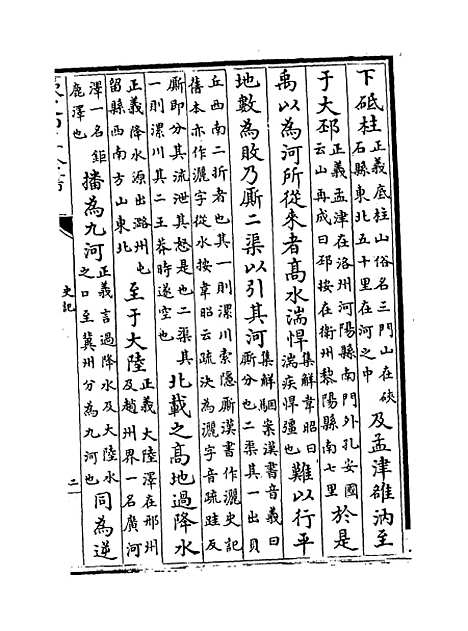 下砥柱正義底柱山俗名三門山在硤石縣東北五十里在河之中及孟津雒汭至
于大邳正義孟津在洛州河陽縣南門外孔安國云山再成曰邳按在衛州黎陽縣南七里於是
禹以為河所從來者髙水湍悍集解韋昭曰湍疾悍彊也難以行平
地數為敗乃廝二渠以引其河集解駰案漢書音義曰廝分也二渠其一出貝
丘西南二折者也其一則漯川索隱廝漢書作灑史記舊本亦作灑字從水按韋昭云疏決為灑字音疏跬反
廝即分其流泄其怒是也二渠其一則漯川其二王莽時遂空也北載之髙地過降水
正義降水源出潞州屯留縣西南方山東北至于大陸正義大陸澤在邢州及趙州界一名廣河
澤一名鉅鹿澤也播為九河正義言過降水及大陸水之口至冀州分為九河也同為逆
史記
二